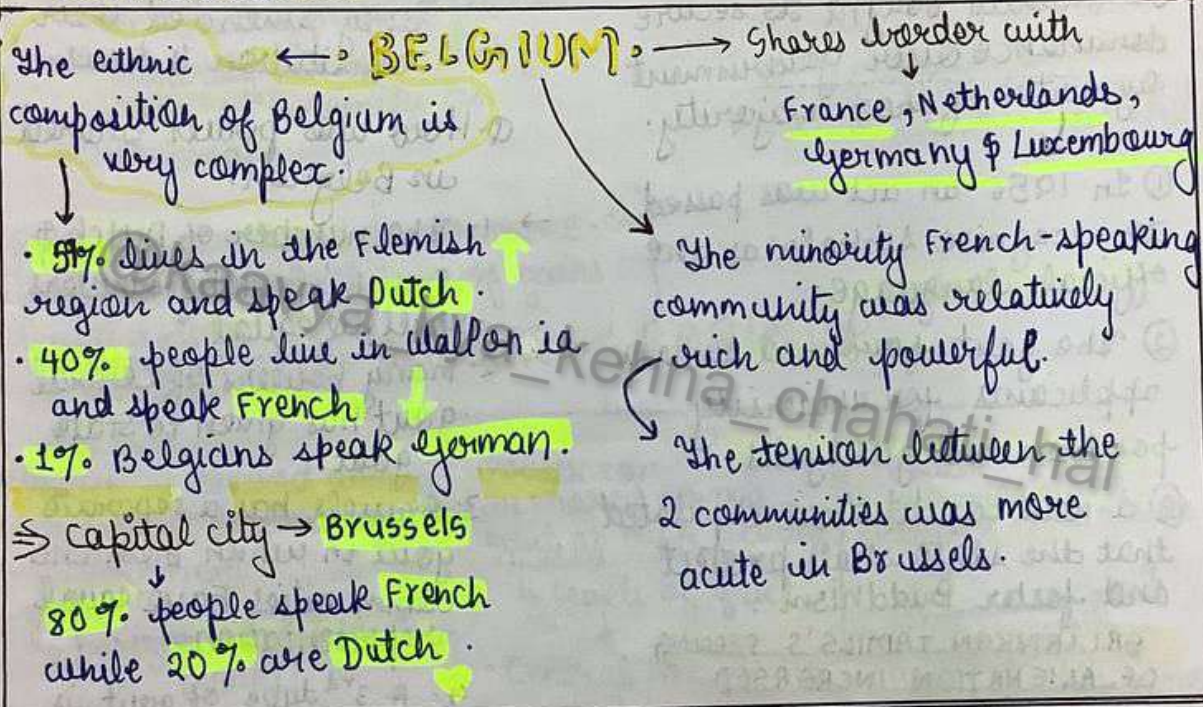 BELGIUM.
The ethnic
composition of Belgium is
very complex.
• 59% lives in the Flemish
region and speak Dutch.
• 40% people live in Wallonia
and speak French
• 1% Belgians speak German.
⇒ Capital city → Brussels
80% people speak French
while 20% are Dutch.
Shares border with
France, Netherlands,
Germany $ Luxembourg
The minority French-speaking
community was relatively
rich and powerful.
The tension between the
2 communities was more
acute in Brussels.